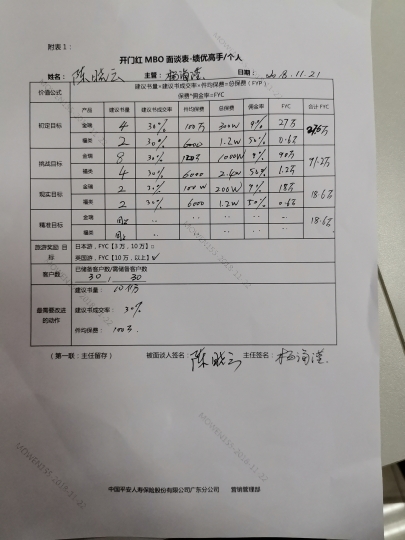 附表1：
开门红 MBO 面谈表-绩优高手/个人
姓名： 陈晓云 主管： 日期： 2018.11.21
价值公式 建议书量*建议书成交率*件均保费=总保费（FYP）
保费*佣金率=FYC
产品 建议书量 建议书成交率 件均保费 总保费 佣金率 FYC 合计 FYC
初定目标 金瑞 4 30% 100万 300W 9% 27万
福类 2 30% 6000 1.2W 50% 0.6万
挑战目标 金瑞 8 30% 1000W 9% 90万 91.2万
福类 4 30% 6000 2.4W 50% 1.2万
现实目标 金瑞 2 20% 100W 200W 9% 18万 18.6万
福类 2 30% 6000 1.2W 50% 0.6万
精准目标 金瑞 同上 18.6万
福类 同上
旅游奖励目标 日本游，FYC【3万，10万】□
英国游，FYC【10万，以上】✓
客户数 已储备客户数/需储备客户数
30 , 30
最需要改进的动作 建议书量：
建议书成交率： 30%
件均保费： 100万
（第一联：主任留存） 被面谈人签名： 陈晓云 主任签名：
MOWEN155 2018-11-22
中国平安人寿保险股份有限公司广东分公司 营销管理部